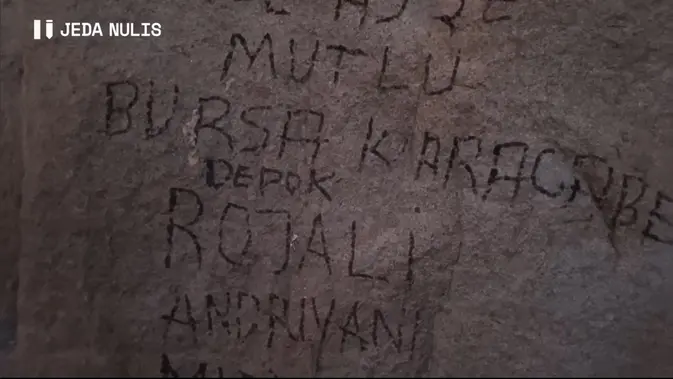 JEDA NULIS
MUTLU
BURSA KARACABE
DEPOK
ROJALi
ANDRIYANI